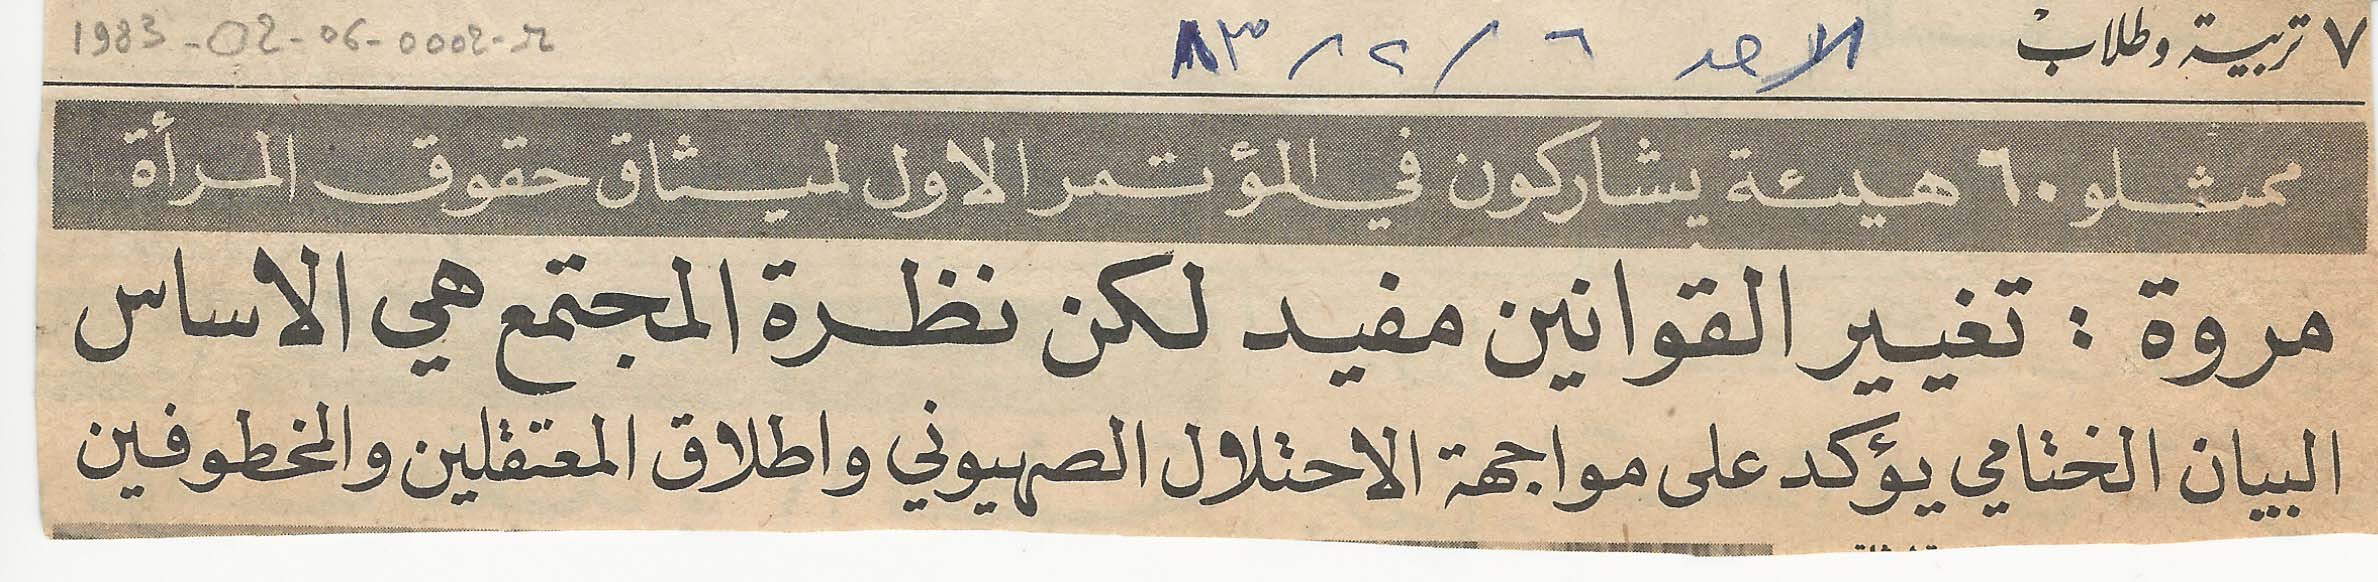 ٧ تربية وطلاب
الاحد ٦ / ٢ / ٨٣
1983-02-06-0002-
ممثلو ٦٠ هيئة يشاركون في المؤتمر الاول لميثاق حقوق المرأة
مروة : تغيير القوانين مفيد لكن نظرة المجتمع هي الاساس
البيان الختامي يؤكد على مواجهة الاحتلال الصهيوني واطلاق المعتقلين والمخطوفين